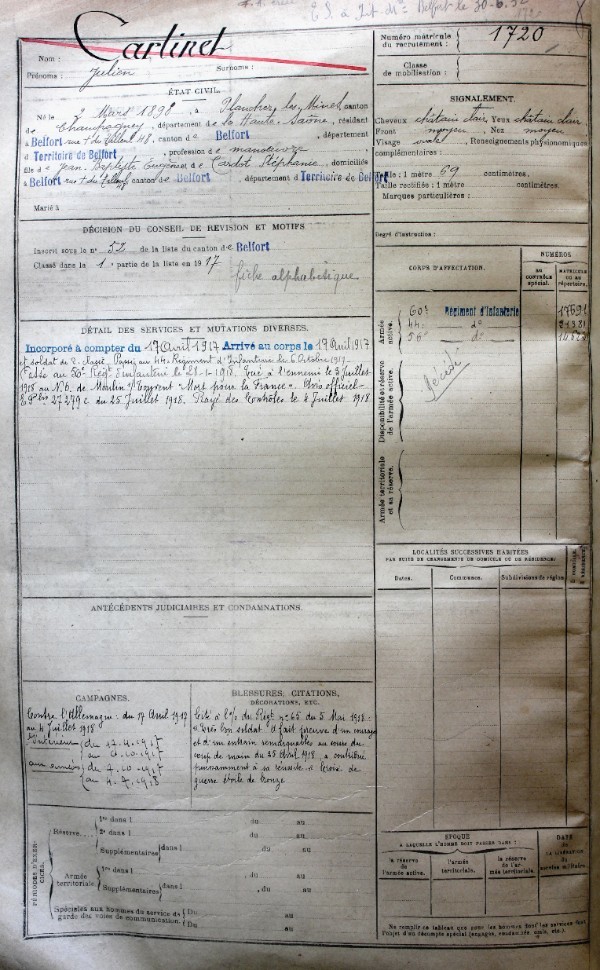 E.S. à Int. Mre Belfort le 30-6-32
Cartinet
Nom :
Prénoms : Julien
Surnoms :
Numéro matricule du recrutement : 1720
Classe de mobilisation :
ÉTAT CIVIL.
Né le 2 Mars 1898, à Plancher les Mines, canton
de Champagney, département de la Haute-Saône, résidant
à Belfort rue du 48, canton de Belfort, département
d Territoire de Belfort, profession de manoeuvre
fils de Jean Baptiste Eugène et de Cardot Stéphanie, domiciliés
à Belfort rue du canton de Belfort, département d Territoire de Belfort
Marié à
SIGNALEMENT.
Cheveux châtain clair, Yeux châtain clair
Front moyen, Nez moyen
Visage ovale, Renseignements physionomiques
complémentaires :
Taille : 1 mètre 69 centimètres.
Taille rectifiée : 1 mètre centimètres.
Marques particulières :
Degré d'instruction :
DÉCISION DU CONSEIL DE RÉVISION ET MOTIFS
Inscrit sous le n° 52 de la liste du canton de Belfort
Classé dans la 1e partie de la liste en 1917
fiche alphabétique
CORPS D'AFFECTATION.
NUMÉROS
AU CONTRÔLE SPÉCIAL.
MATRICULE OU AU RÉPERTOIRE.
Armée active.
60e Régiment d'Infanterie 17691
44e do
56e do
Disponibilité et réserve de l'armée active.
décédé
Armée territoriale et sa réserve.
DÉTAIL DES SERVICES ET MUTATIONS DIVERSES.
Incorporé à compter du 17 Avril 1917 Arrivé au corps le 19 Avril 1917
et soldat de 2e classe. Passé au 44e Régiment d'Infanterie le 6 Octobre 1917.
Passé au 56e Régt d'infanterie le 21-1-1918. Tué à l'ennemi le 3 Juillet
1918 au N.O. de Moulin s/ Touvent "Mort pour la France". Avis officiel
27279 c du 25 Juillet 1918. Rayé des Contrôles le 4 Juillet 1918.
LOCALITÉS SUCCESSIVES HABITÉES
PAR SUITE DE CHANGEMENTS DE DOMICILE OU DE RÉSIDENCE.
Dates.
Communes.
Subdivisions de région.
ANTÉCÉDENTS JUDICIAIRES ET CONDAMNATIONS.
CAMPAGNES.
Contre l'Allemagne : du 17 Avril 1917
au 4 Juillet 1918
Intérieur du 17.4.1917
au 6.10.1917
aux armées du 7.10.1917
au 4.7.1918
BLESSURES, CITATIONS, DÉCORATIONS, ETC.
Cité à l'o/ du Régt n° 65 du 5 Mai 1918 :
"Très bon soldat. A fait preuve d'un courage
et d'un entrain remarquables au cours du
coup de main du 25 Avril 1918, a contribué
puissamment à sa réussite." Croix de
guerre étoile de bronze
PÉRIODES D'EXERCICES.
Réserve.
1re dans l du au
2e dans l du au
Supplémentaires dans l du au
Armée territoriale.
1re dans l du au
Supplémentaires dans l du au
Spéciales aux hommes du service de garde des voies de communication.
Du au
Du au
ÉPOQUE
À LAQUELLE L'HOMME DOIT PASSER DANS :
la réserve de l'armée active.
l'armée territoriale.
la réserve de l'armée territoriale.
DATE DE LA LIBÉRATION du service militaire.
Ne remplir ce tableau que pour les hommes dont les services font
l'objet d'un décompte spécial (engagés, omis, etc.).